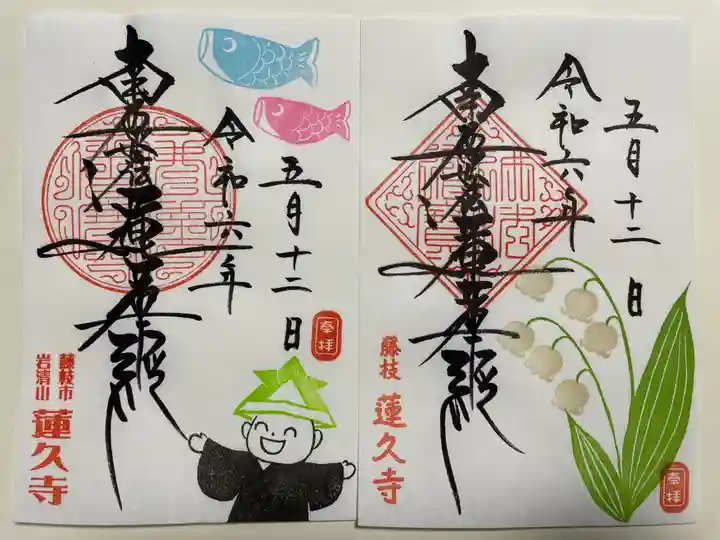 南無妙法蓮華経
令和六年
五月十二日
奉拝
藤枝市
岩清山
蓮久寺
五月十二日
令和六年
南無妙法蓮華経
藤枝
蓮久寺
奉拝